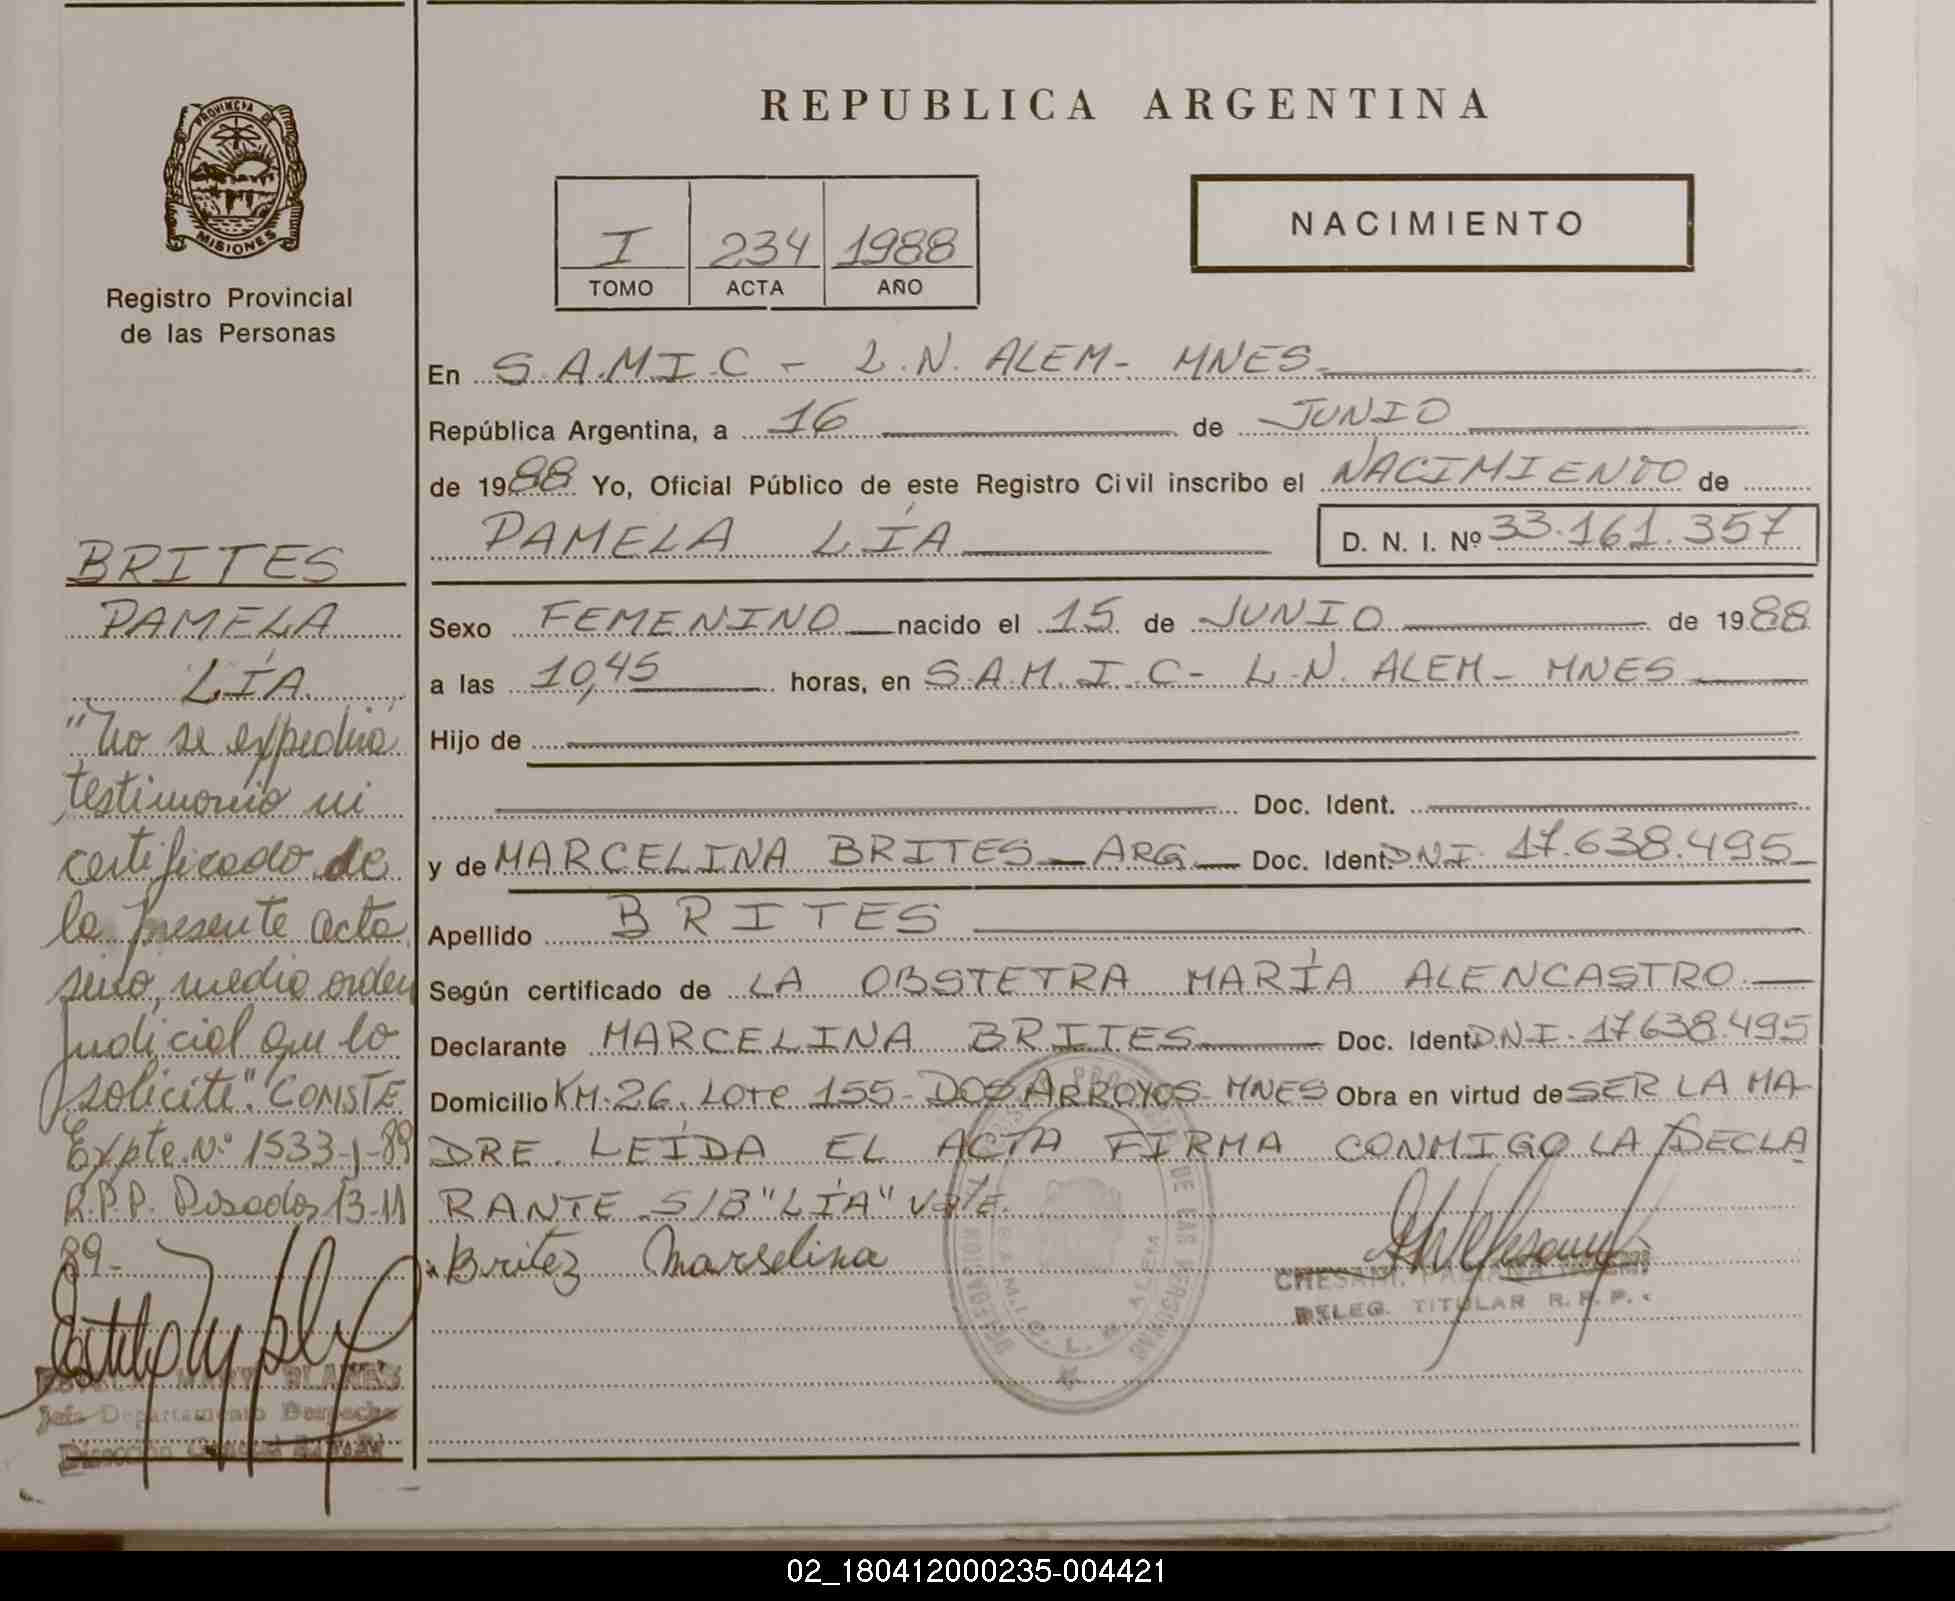 REPUBLICA ARGENTINA
PROVINCIA DE
MISIONES
Registro Provincial
de las Personas
I 234 1988
TOMO ACTA AÑO
NACIMIENTO
En S.A.M.I.C - L.N. ALEM - MNES.
República Argentina, a 16 de JUNIO
de 1988 Yo, Oficial Público de este Registro Civil inscribo el NACIMIENTO de
PAMELA LÍA D. N. I. Nº 33.161.357
Sexo FEMENINO nacido el 15 de JUNIO de 1988
a las 10,45 horas, en S.A.M.I.C - L.N. ALEM - MNES
Hijo de
Doc. Ident.
y de MARCELINA BRITES - ARG. Doc. Ident. DNI. 17.638.495
Apellido BRITES
Según certificado de LA OBSTETRA MARÍA ALENCASTRO.
Declarante MARCELINA BRITES Doc. Ident. DNI. 17.638.495
Domicilio KM. 26. LOTE 155 - DOS ARROYOS - MNES Obra en virtud de SER LA MA-
DRE. LEÍDA EL ACTA FIRMA CONMIGO LA DECLA
RANTE S/B "LÍA" VALE.
Britez Marselina
DELEG. TITULAR R. P. P.
BRITES
PAMELA
LÍA
"No se expedirá
testimonio ni
certificado de
la presente acta
sino, medio orden
judicial que lo
solicite". CONSTE
Expte. Nº 1533-J-89
R.P.P. Posadas 13-11
89-
Jefa Departamento Despacho
02_180412000235-004421